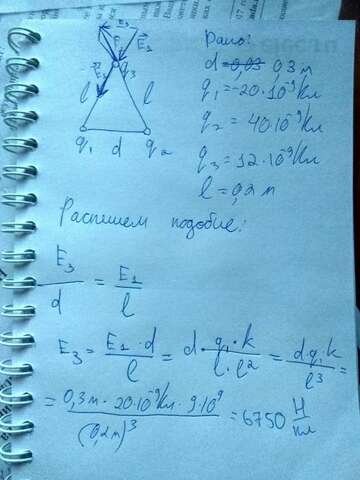 E₃
F
E₂
E₁
q₃
l
l
q₁ d q₂
Дано:
d = 0,03 0,3 м
q₁ = -20·10⁻⁹ Кл
q₂ = 40·10⁻⁹ Кл
q₃ = 12·10⁻⁹ Кл
l = 0,2 м
Распишем подобие:
E₃/d = E₁/l
E₃ = E₁·d/l = d·q₁·k/l·l² = d·q₁·k/l³ =
= 0,3 м·20·10⁻⁹ Кл·9·10⁹/(0,2 м)³ = 6750 Н/Кл